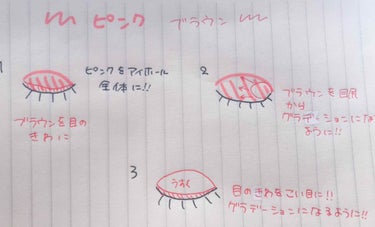 ピンク ブラウン
1
ピンクをアイホール
全体に!!
ブラウンを目の
きわに
2
ブラウンを目尻
から
グラデーションになる
ように!!
3
うすく
目のきわをこい目に!!
グラデーションになるように!!